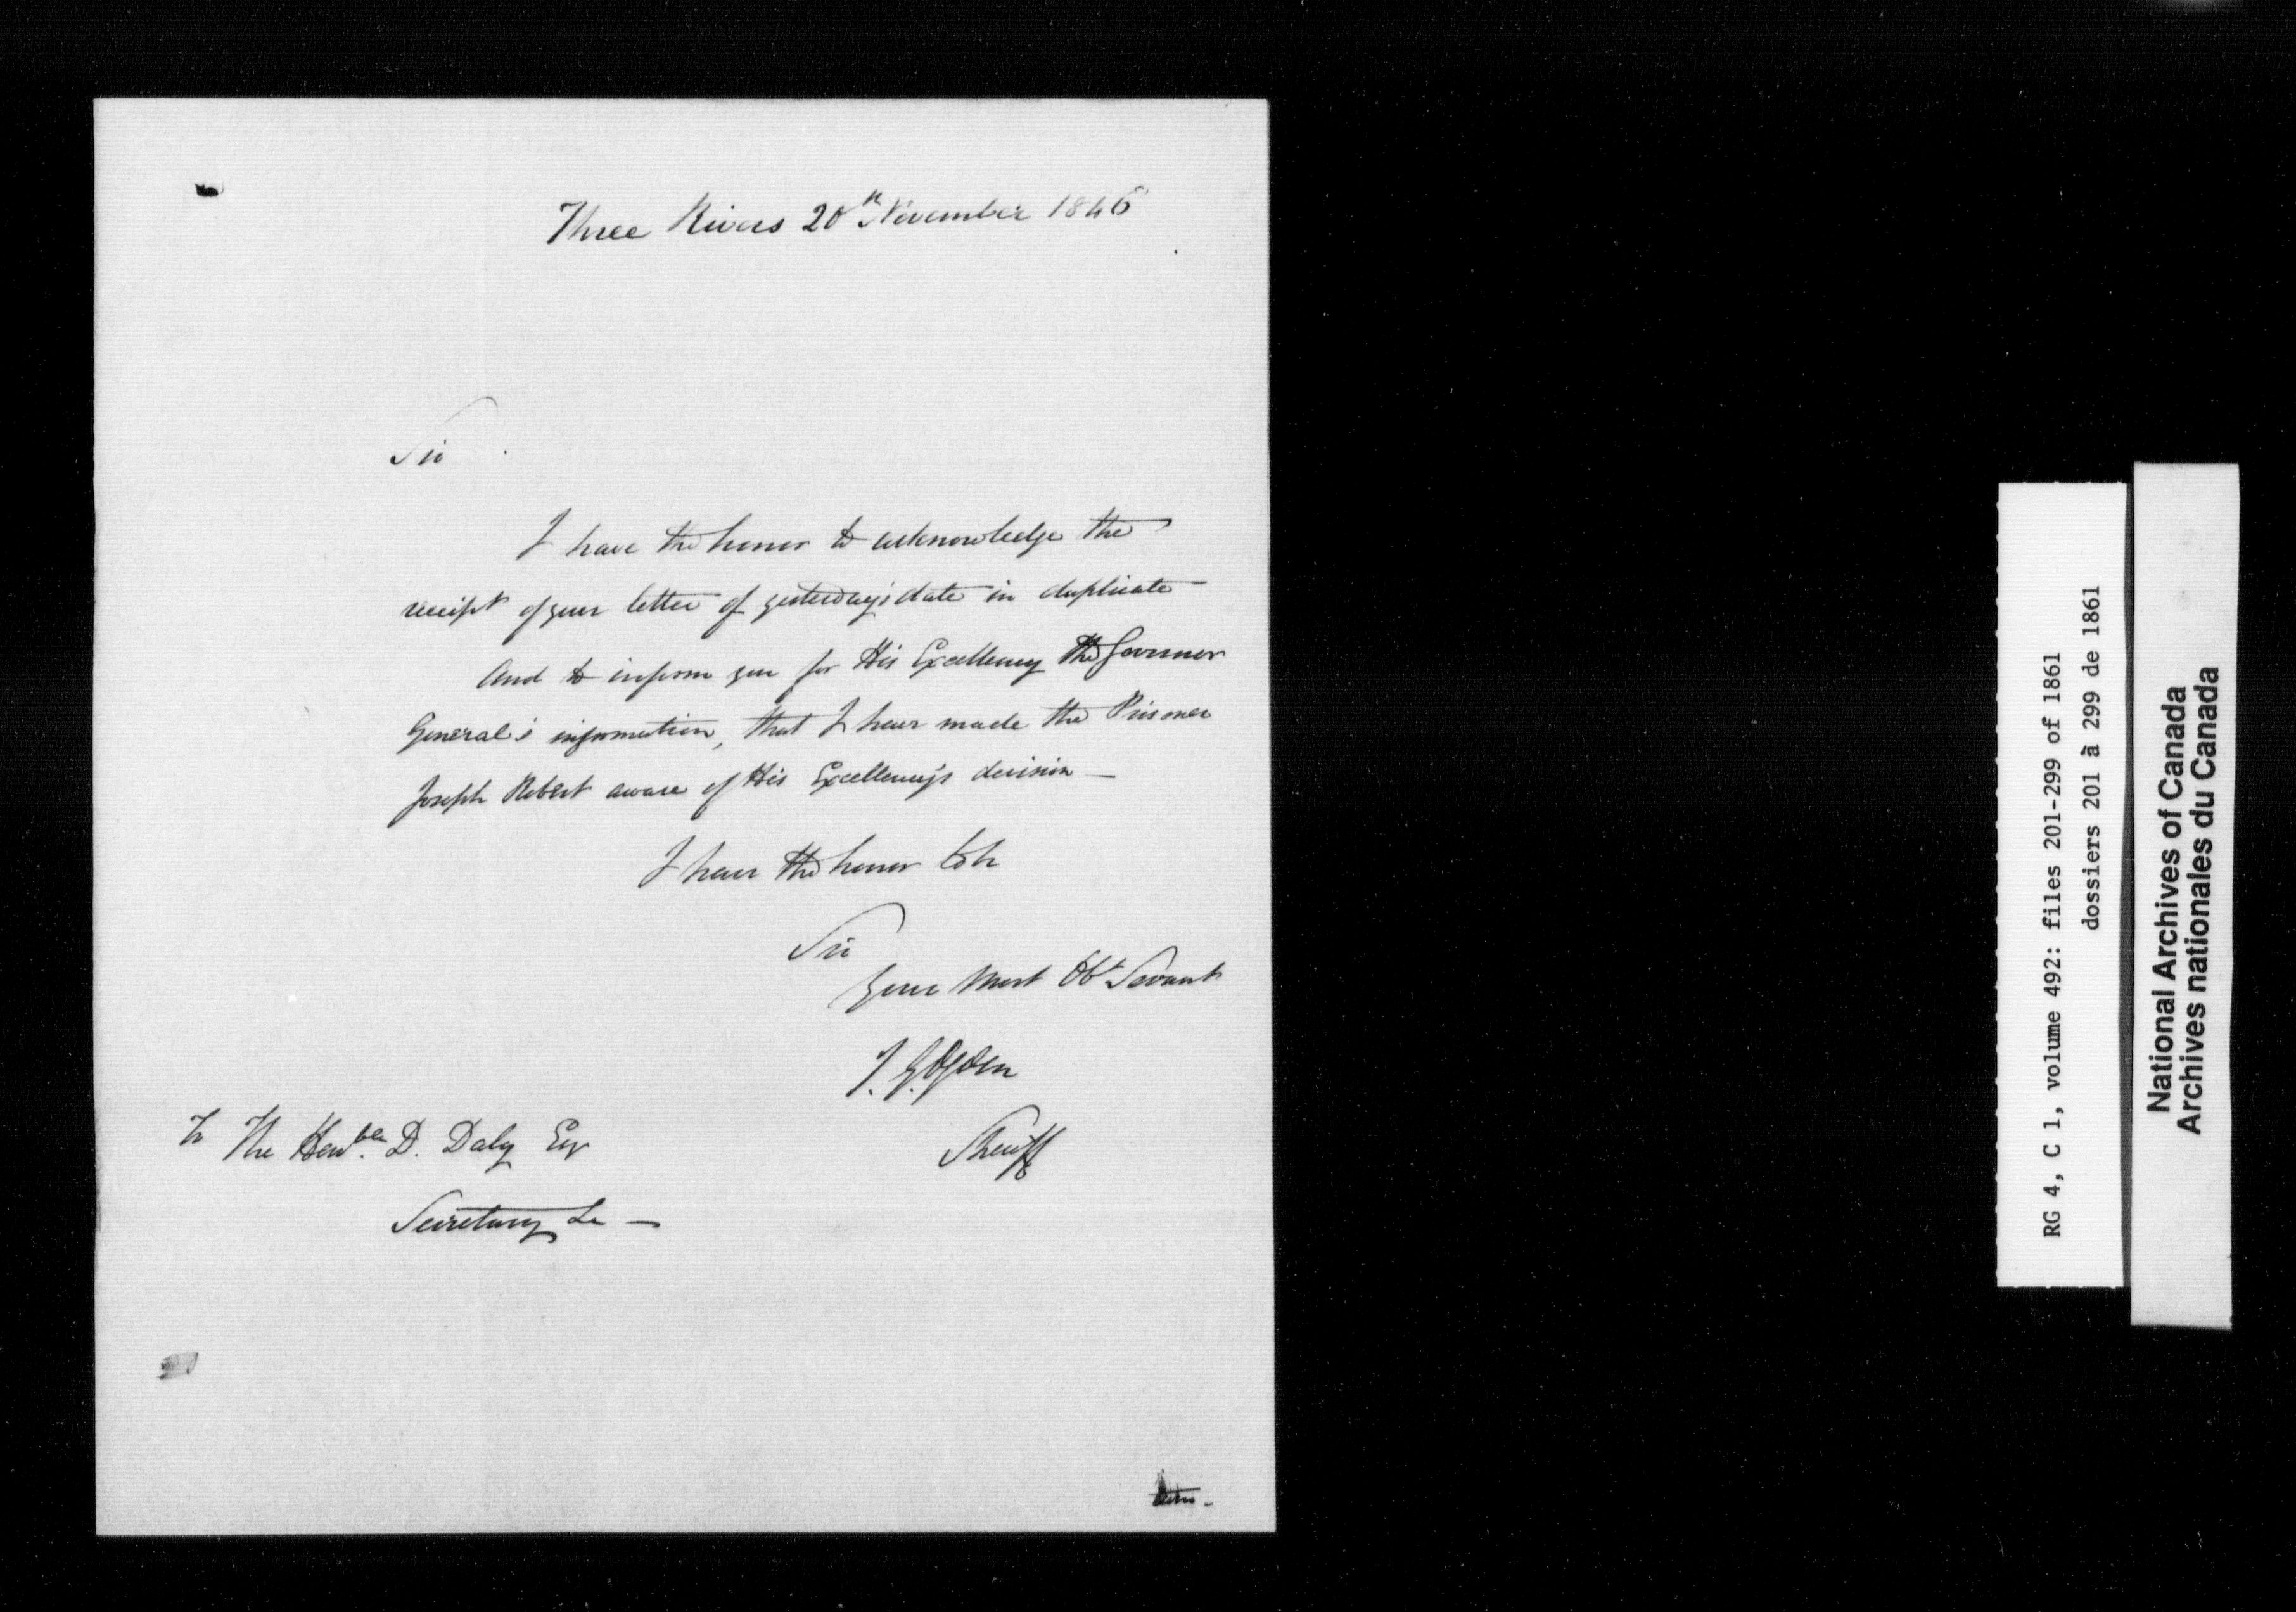 Three Rivers 20th November 1846
Sir
I have the honor to acknowledge the
receipt of your letter of yesterday's date in duplicate
And to inform you for His Excellency The Governor
General's information, that I have made the Prisoner
Joseph Robert aware of His Excellency's decision —
I have the honor to be
Sir
Your Most Obt Servant
I. G. Ogden
Sheriff
To The Honble. D. Daly Esqr
Secretary &c —
RG 4, C 1, volume 492: files 201-299 of 1861
dossiers 201 à 299 de 1861
National Archives of Canada
Archives nationales du Canada